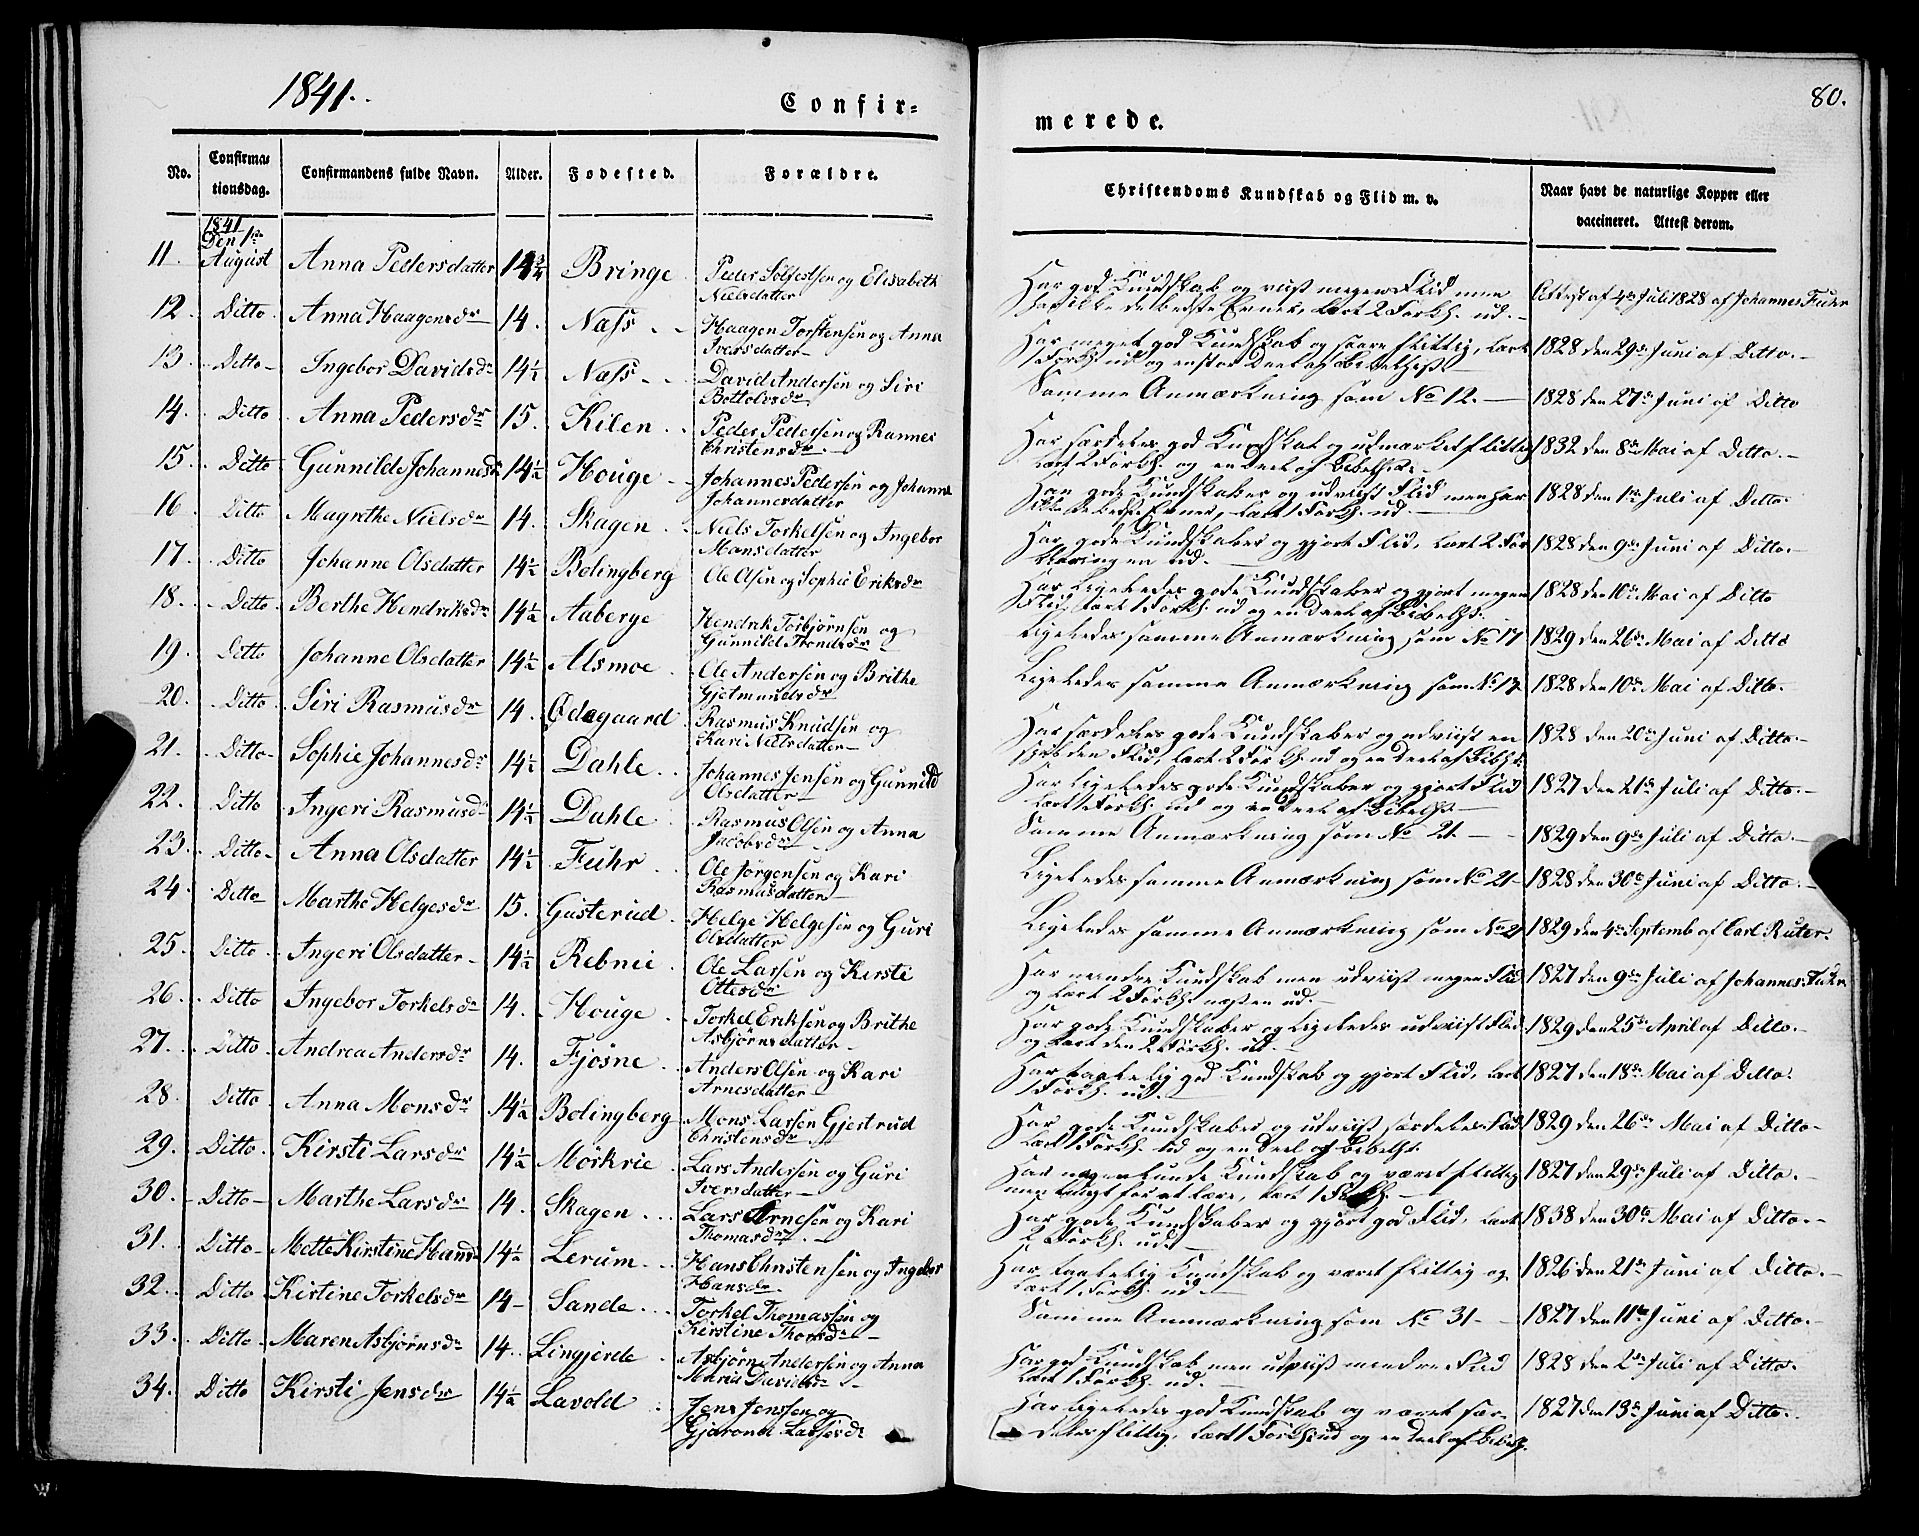 1841.
Confir=
merede.
80.
No.
Confirmationsdag.
Confirmandens fulde Navn.
Alder.
Fødested.
Forældre.
Christendoms Kundskab og Flid m. v.
Naar havt de naturlige Kopper eller vaccineret. Attest derom.
1841 Den 1ste
11. August Anna Pedersdatter 14 Bringe Peder Sølfestsen og Elisabeth Nielsdatter
Har god Kundskab og viist megen Flid men har ikke de bedste Evner, lært 2 Forkl. ud. Attest af 4de Juli 1828 af Johannes Fuhr
12. Ditto Anna Haagensdr 14. Næss Haagen Torstensen og Anna Iversdatter
Har meget god Kundskab og været flittig, lært 1 Forkl. ud og en stor Deel af Bibelhist. 1828 den 29de Juni af Ditto.
13. Ditto Ingebor Davidsdr 14½ Næss David Andersen og Siri Bottolvsdr
Samme Anmærkning som No 12. 1828 den 27de Juni af Ditto
14. Ditto Anna Pedersdr 15. Kilen Peder Pedersen og Rannei Christensdr.
Har særdeles god Kundskab og udmærket flittig lært 2 Forkl. og en Deel af Bibelhist. 1832 den 8de Mai af Ditto.
15. Ditto Gunnilde Johannesdr 14½ Houge Johannes Pedersen og Johanna Johannesdatter
Har gode Kundskaber og udviist Flid men har ikke de bedste Evner, lært 1 Forkl. ud. 1828 den 1ste Juli af Ditto.
16. Ditto Magrethe Nielsdr 14. Skagen Niels Torkelsen og Ingebor Monsdatter
Har gode Kundskaber og gjort Flid, lært 2 Forklaringen ud. 1828 den 9de Juni af Ditto.
17. Ditto Johanne Olsdatter 14½ Bolingberg Ole Olsen og Sophie Eriksdr
Har ligeledes gode Kundskaber og gjort megen Flid, lært 1 Forkl. ud og en Deel af Bibelhist. 1828 den 10de Mai af Ditto
18. Ditto Berthe Hendriksdr 14½ Aaberge Hendrik Torbjørnsen og Gunnild Trondsdr
Ligeledes samme Anmærkning som No 17 1829 den 26de Mai af Ditto
19. Ditto Johanne Olsdatter 14½ Alsmoe Ole Andersen og Brithe Gjetmundsdr
Ligeledes samme Anmærkning som No. 17. 1828 den 10de Mai af Ditto.
20. Ditto Siri Rasmusdr 14. Ødegaard Rasmus Knudsen og Kari Nielsdatter
Har særdeles gode Kundskaber og udviist en Flid, lært 2 Forkl. ud og en Deel af Bibhist. 1828 den 20de Juni af Ditto.
21. Ditto Sophie Johannesdr 14½ Dahle Johannes Jensen og Gunnild Olsdatter
Har ligeledes gode Kundskaber og gjort Flid lært 1 Forkl. ud og en Deel af Bibelhist. 1827 den 21de Juli af Ditto.
22. Ditto Ingeri Rasmusdr 14½ Dahle Rasmus Olsen og Anna Jacobsdr
Samme Anmærkning som No 21. 1829 den 9de Juli af Ditto.
23. Ditto Anna Olsdatter 14½ Fuhr Ole Jørgensen og Kari Rasmusdatter
Ligeledes samme Anmærkning som No 21 1828 den 30te Juni af Ditto.
24. Ditto Marthe Helgesdr 15. Gusterud Helge Helgesen og Guri Olsdatter
Ligeledes samme Anmærkning som No 21 1829 den 4de Septemb af Carl Ruter.
25. Ditto Ingeri Olsdatter 14½ Rebnie Ole Larsen og Kirsti Ottesdr
Har mindre Kundskab men udviist megen Flid og lært 2 Forkl. næsten ud. 1827 den 9de Juli af Johannes Fuhr
26. Ditto Ingebor Torkelsdr 14. Houge Torkel Eriksen og Brithe Asbjørnsdatter
Har gode Kundskaber og ligeledes udviist Flid og lært den 2 Forkl. ud. 1829 den 25de April af Ditto.
27. Ditto Andrea Andersdr 14. Fjøsne Anders Olsen og Kari Arnesdatter
Har taalelig god Kundskab og gjort Flid, lært 1 Forkl. ud. 1827 den 18de Mai af Ditto.
28. Ditto Anna Monsdr 14½ Bolingberg Mons Larsen Gjestrud Christensdr
Har gode Kundskaber og udviist særdeles Flid lært 1 Forkl. ud og en Deel af Bibelhist. 1829 den 26de Mai af Ditto
29. Ditto Kirsti Larsdr 14½ Mørkrie Lars Andersen og Guri Iversdatter
Har Kundskab og været flittig men tungt for at lære, lært 1 Forkl. 1827 den 29de Juli af Ditto.
30. Ditto Marthe Larsdr 14. Skagen Lars Arnesen og Kari Thomasdr.
Har gode Kundskaber og gjort god Flid, lært 2 Forkl. ud. 1838 den 30te Mai af Ditto.
31. Ditto Mette Kirstine Hansd 14½ Lerum Hans Christensen og Ingebor Hansdr
Har taalelig Kundskab og været flittig og lært 1 Forkl. ud 1826 den 21de Juni af Ditto.
32. Ditto Kirstine Torkelsdr 14 Sande Torkel Thomassen og Kirstine Thorsdr
Samme Anmærkning som No 31 1827 den 11te Juni af Ditto.
33. Ditto Maren Asbjørnsdr 14. Lingjerde Asbjørn Andersen og Anna Maria Davidsdr
Har god Kundskab men udviist mindre Flid lært 1 Forkl. ud. 1828 den 2den Juli af Ditto.
34. Ditto Kirsti Jensdr 14½ Lavold Jens Jenssen og Gjarond Larsesdr
Har ligeledes god Kundskab og været særdeles flittig, lært 1 Forkl. ud og en Deel af Bibelh. 1827 den 13de Juni af Ditto.